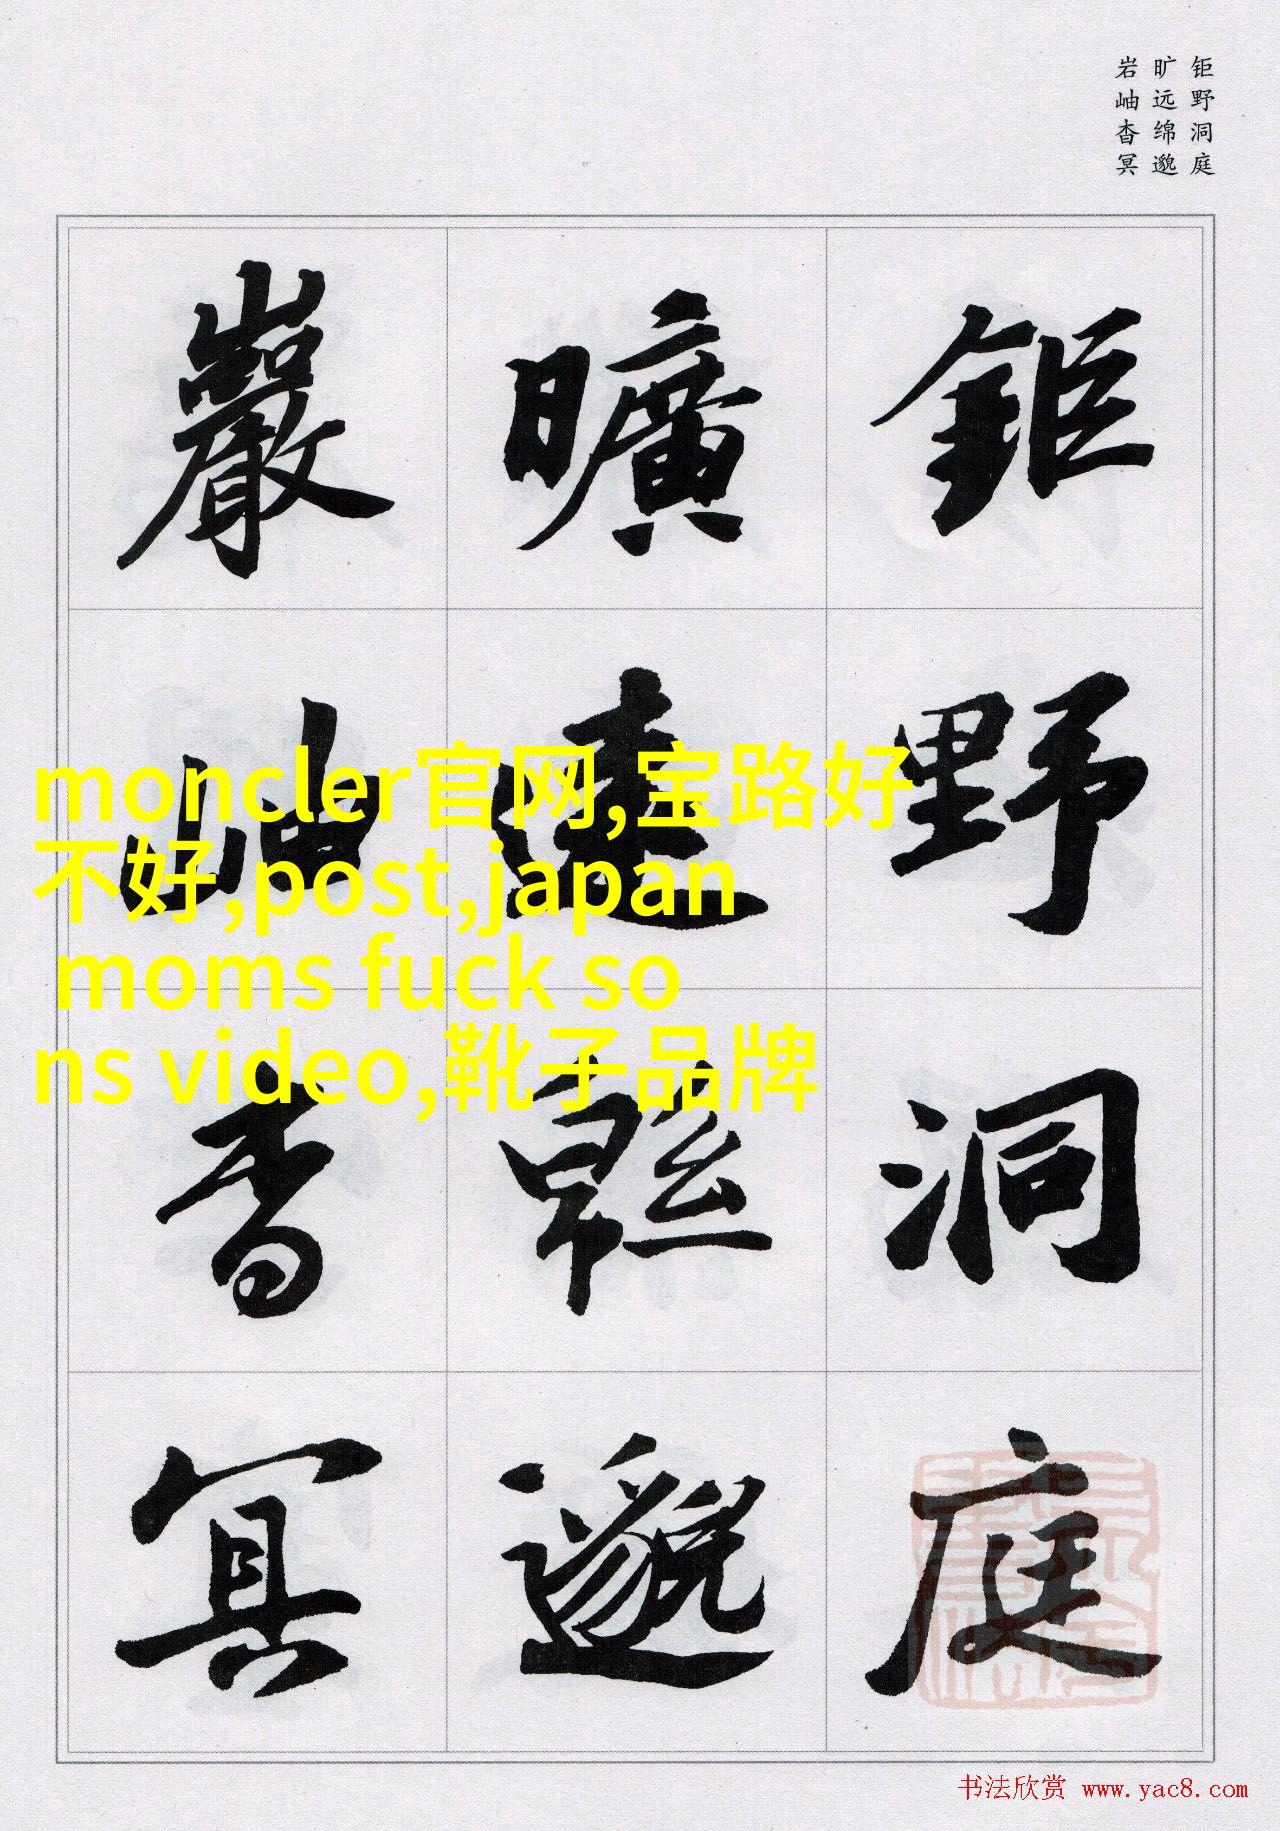 钜野洞庭
旷远绵邈
岩岫杳冥
鉅野洞庭
曠遠緜邈
巖岫杳冥
moncler官网,宝路好
不好,post,japan
moms fuck so
ns video,靴子品牌
书法欣赏 www.yac8.com